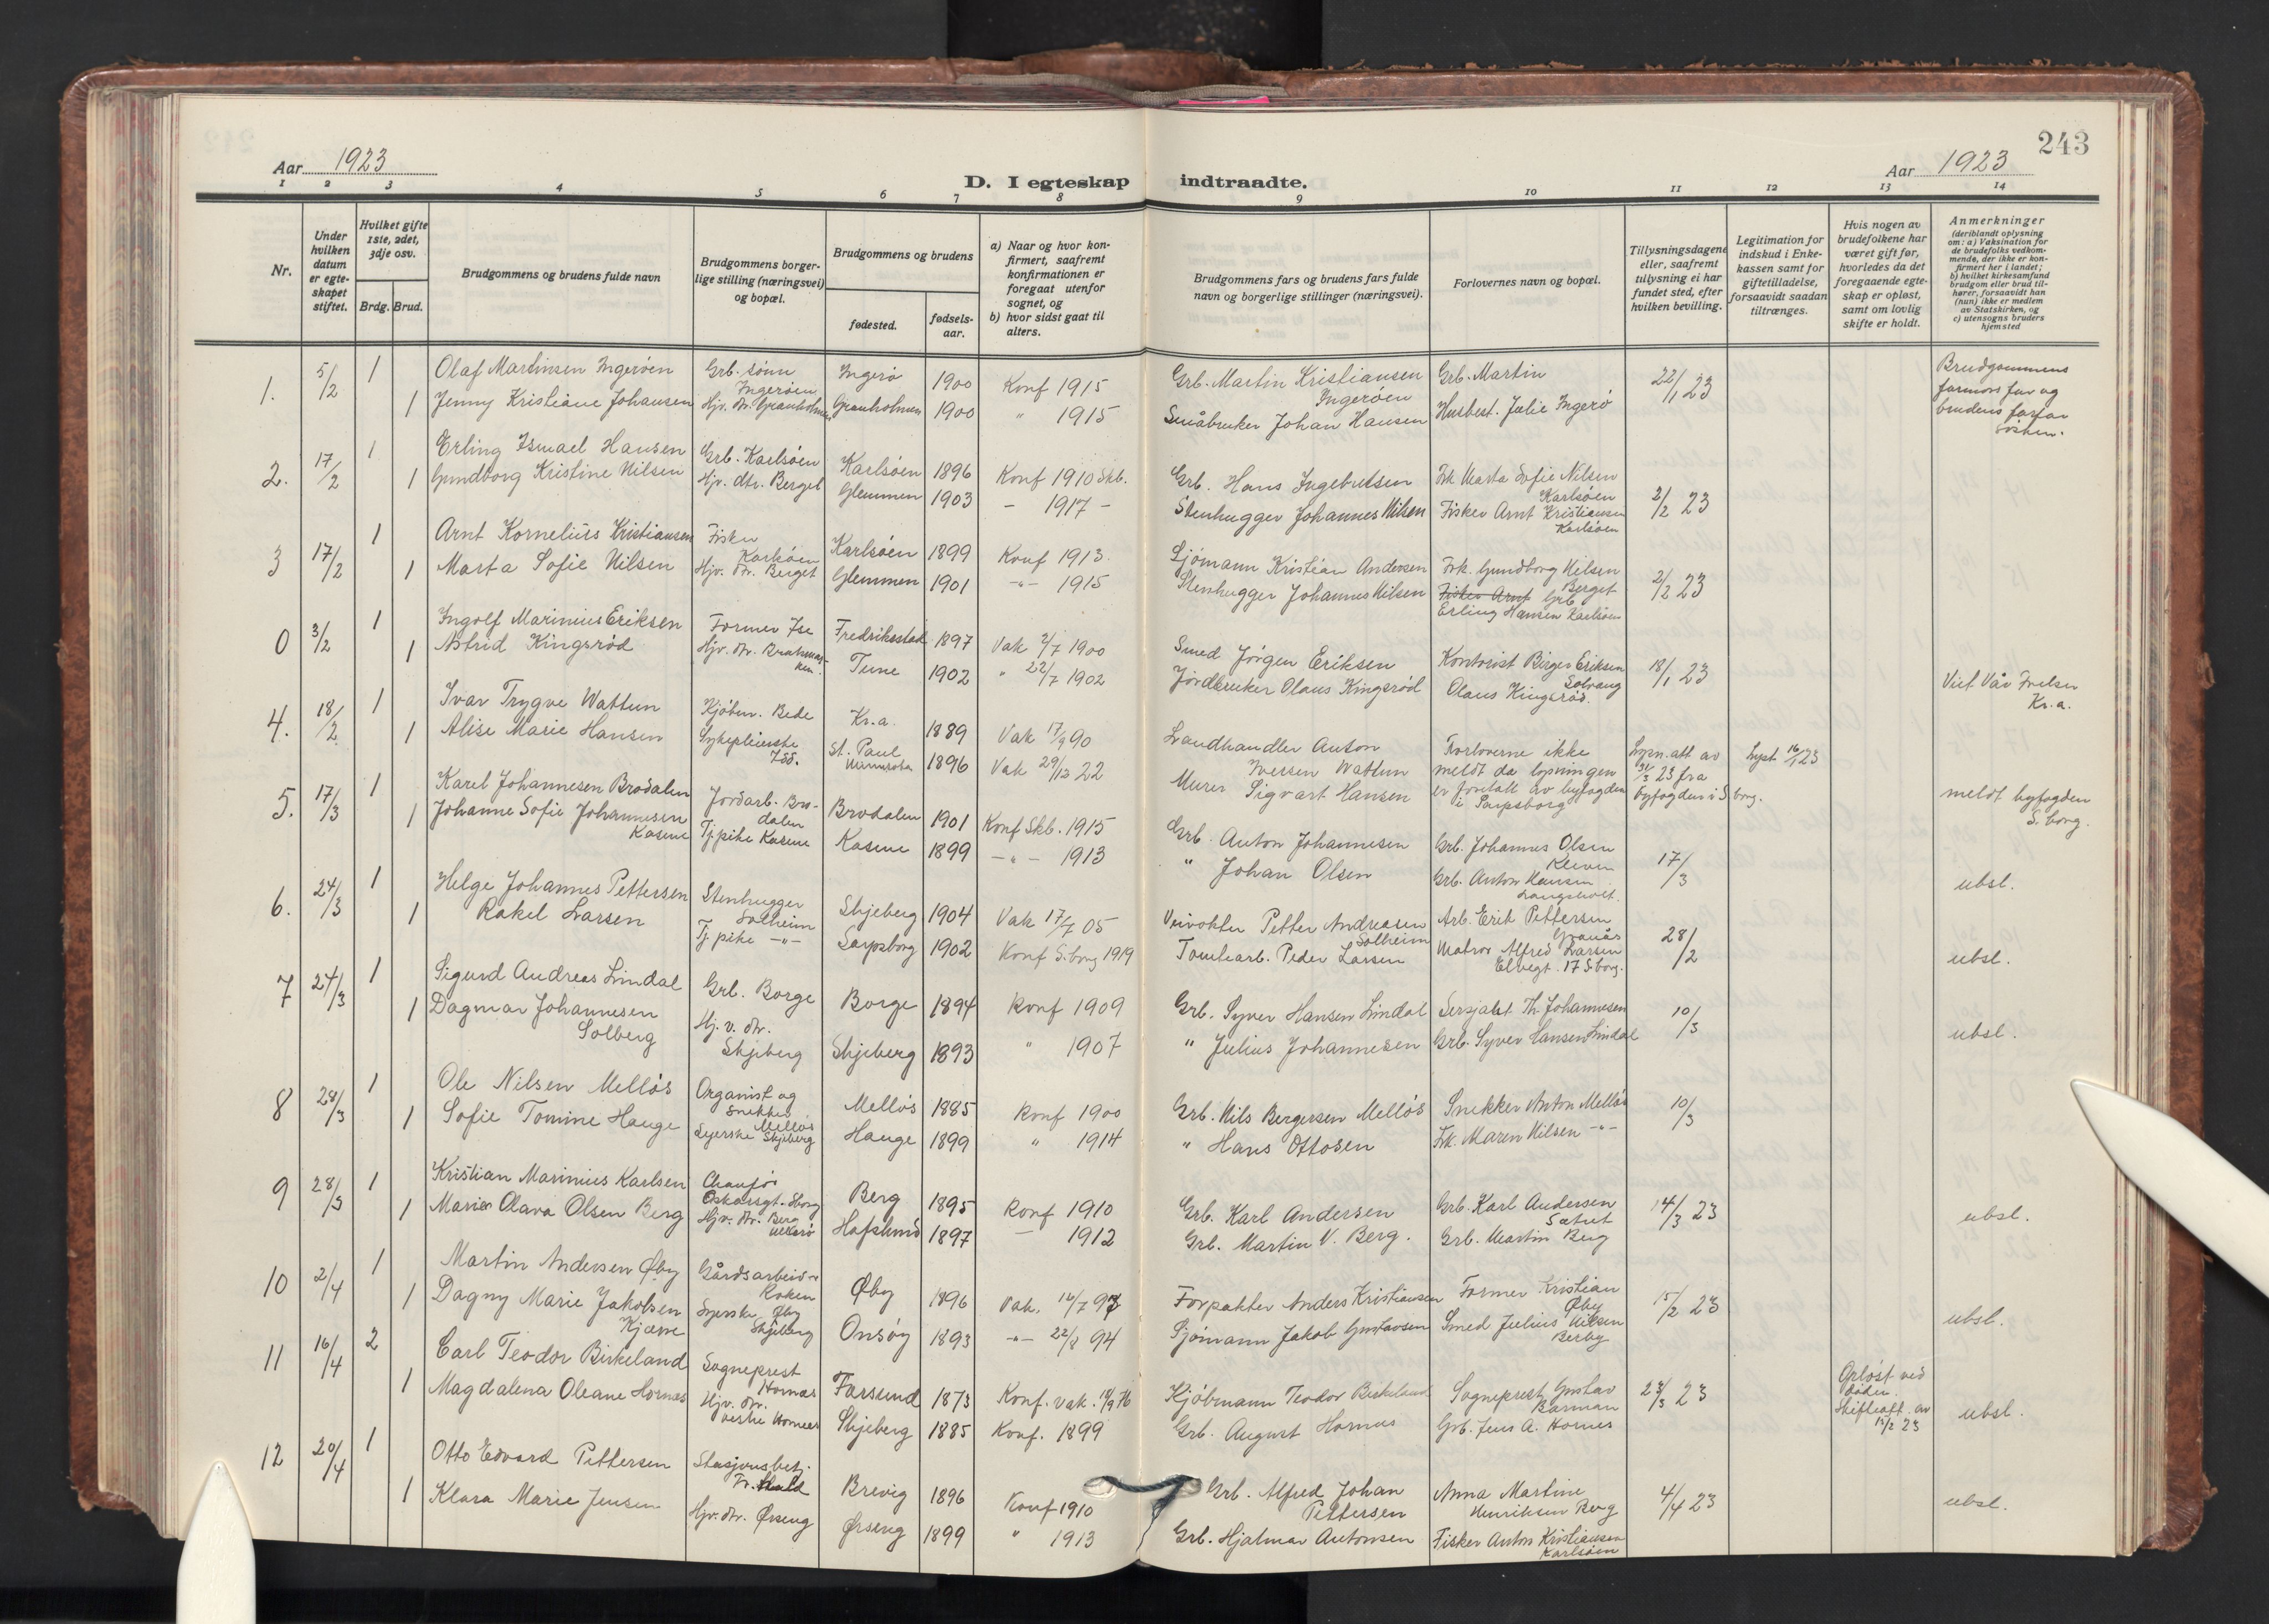 243
Aar 1923
Aar 1923
D. I egteskap indtraadte.
1 2 3 4 5 6 7 8 9 10 11 12 13 14
Nr.
Under hvilken datum er egteskapet stiftet.
Hvilket gifte 1ste, 2det, 3dje osv.
Brdg. Brud.
Brudgommens og brudens fulde navn
Brudgommens borgerlige stilling (næringsvei) og bopæl.
Brudgommens og brudens
fødested.
fødselsaar.
a) Naar og hvor konfirmert, saafremt konfirmationen er foregaat utenfor sognet, og
b) hvor sidst gaat til alters.
Brudgommens fars og brudens fars fulde navn og borgerlige stillinger (næringsvei).
Forlovernes navn og bopæl.
Tillysningsdagene eller, saafremt tillysning ei har fundet sted, efter hvilken bevilling.
Legitimation for indskud i Enkekassen samt for giftetilladelse, forsaavidt saadan tiltrænges.
Hvis nogen av brudefolkene har været gift før, hvorledes da det foregaaende egteskap er opløst, samt om lovlig skifte er holdt.
Anmerkninger (deriblandt oplysning om: a) Vaksination for de brudefolks vedkommende, der ikke er konfirmert her i landet; b) hvilket kirkesamfund brudgom eller brud tilhører, forsaavidt han (hun) ikke er medlem av Statskirken, og c) utensogns bruders hjemsted
1. 5/2 1 Olaf Martinsen Ingerøen Grb. sønn Ingerøen Ingerø 1900 Konf 1915 Grb. Martin Kristiansen Ingerøen Grb. Martin 22/1 23 Brudgommens farmors far og brudens farfar
1 Jenny Kristiane Johansen Hjv. dtr. Granholmen Granholmen 1900 " 1915 Småbruker Johan Hansen Husbest. Julie Ingerø
2. 17/2 1 Erling Ismael Hansen Grb. Karlsøen Karlsøen 1896 Konf 1910 Skb. Grb. Hans Ingebretsen Frk Marta Sofie Nilsen Karlsøen 2/2 23
1 Gundborg Kristine Nilsen Hjv. dtr. Berget Glemmen 1903 - 1917 - Stenhugger Johannes Nilsen Fisker Arnt Kristiansen Karlsøen
3 17/2 1 Arnt Kornelius Kristiansen Fisker Karlsøen Karlsøen 1899 Konf 1913. Sjømann Kristian Andersen Frk. Gundborg Nilsen Berget 2/2 23
1 Marta Sofie Nilsen Hjv. dtr. Berget Glemmen 1901 -"- 1915 Stenhugger Johannes Nilsen Fisker Arnt Grb. Erling Hansen Karlsøen
0 3/2 1 Ingolf Marinius Eriksen Former Ise Fredriksstad 1897 Vak 2/7 1900 Smed Jørgen Eriksen Kontorist Birger Eriksen Solvang 18/1 23
1 Astrid Kingsrød Hjv. dtr. Tune 1902 " 22/7 1902 Jordbruker Olaus Kingsrød Olaus Kingsrød. Viet Vår Frelser Kr.a.
4. 18/2 1 Ivar Trygve Wattum Kjøbm. Bede Kr.a. 1889 Vak 17/9 90 Landhandler Anton Iversen Wattum Forloverne ikke meldt da lysningen er foretatt av byfogden i Sarpsborg Lysn. att av 31/3 23 fra byfogden i S borg. Lyst 16/1 23
1 Alise Marie Hansen Sykepleierske St. Paul Minnesota 1896 Vak 29/12 22 Murer Sigvart Hansen meldt byfogden S. borg.
5. 17/3 1 Karel Johannesen Brodalen Jordarb. Brodalen Brodalen 1901 Konf Skb. 1915 Grb. Anton Johannesen Grb. Johannes Olsen 17/3
1 Johanne Sofie Johannesen Kasene Tj.pike Kasene Kasene 1899 -"- 1913 " Johan Olsen Grb. Anton Hansen ubsl.
6. 24/3 1 Helge Johannes Pettersen Stenhugger Solheim Skjeberg 1904 Vak 17/7 05 Veivokter Petter Andreasen Solheim Arb. Erik Pettersen 28/2
1 Rakel Larsen Tj.pike -"- Sarpsborg 1902 Konf S.borg 1919 Tomtearb. Peder Larsen Matros Alfred Larsen Elvegt. 17 S.borg. ubsl.
7 24/3 1 Sigurd Andreas Lindal Grb. Borge Borge 1894 Konf 1909 Grb. Syver Hansen Lindal Sersjalst Th. Johannesen 10/3
1 Dagmar Johannesen Solberg Hj.v. dtr. Skjeberg Skjeberg 1893 " 1907 " Julius Johannesen Grb. Syver Hansen Lindal ubsl.
8 28/3 1 Ole Nilsen Melløs Organist og snekker Melløs Melløs 1885 Konf 1900 Grb. Nils Bergersen Melløs Snekker Anton Melløs 10/3
1 Sofie Tomine Hauge Syerske Skjeberg Hauge 1899 " 1914 " Hans Ottosen Frk. Maren Nilsen -"-
9 28/3 1 Kristian Marinius Karlsen Chaufør Oskarsgt. Sborg Berg 1895 Konf 1910 Grb. Karl Andersen Grb. Karl Andersen 14/3 23 ubsl.
1 Marie Olava Olsen Berg Hjv. dtr. Berg Hafslund 1897 - 1912 Grb. Martin V. Berg. Grb. Martin Berg
10 2/4 1 Martin Andersen Øby Gårdsarbeider Øby 1896 Vak. 16/7 97 Forpakter Anders Kristiansen Former Kristian Øby 15/2 23
1 Dagny Marie Jakobsen Kjærre Syerske Øby Skjeberg Onsøy 1893 -"- 22/8 94 Sjømann Jakob Gustavsen Smed Julius Nilsen Berby ubsl.
11 16/4 2 Carl Teodor Birkeland Sogneprest Hornæs Farsund 1873 Konf. vak. Kjøbmann Teodor Birkeland Sogneprest Gustav Barman 23/3 23 Opløst ved døden. Skifteatt. av 15/2 23
1 Magdalena Oleane Hornæs Hjv. dtr. vestre Hornæs Skjeberg 1885 Konf. 1899 Grb. August Hornæs Grb. Jens A. Hornes ubsl.
12 20/4 1 Otto Edvard Pettersen Stasjonsbetj. Brevig 1896 Konf 1910 Grb. Alfred Johan Pettersen Anna Martine Henriksen Berg 4/4 23 ubsl.
1 Klara Marie Jensen Hjv. dtr. Ørseng Ørseng 1899 " 1913 Grb. Hjalmar Antonsen Fisker Anton Kristiansen Karlsøen